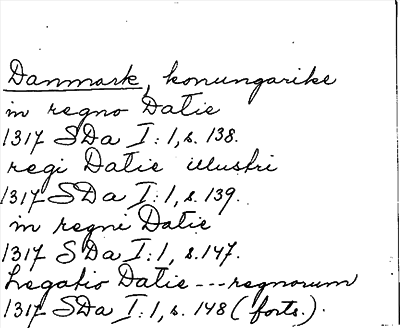 Danmark, konungarike
in regno Datie
1317 SDa I:1, s. 138.
regi Datie illustri
1317 SDa I:1, s. 139.
in regni Datie
1317 SDa I:1, s. 147.
Legatio Datie --- regnorum
1317 SDa I:1, s. 148 (forts.).